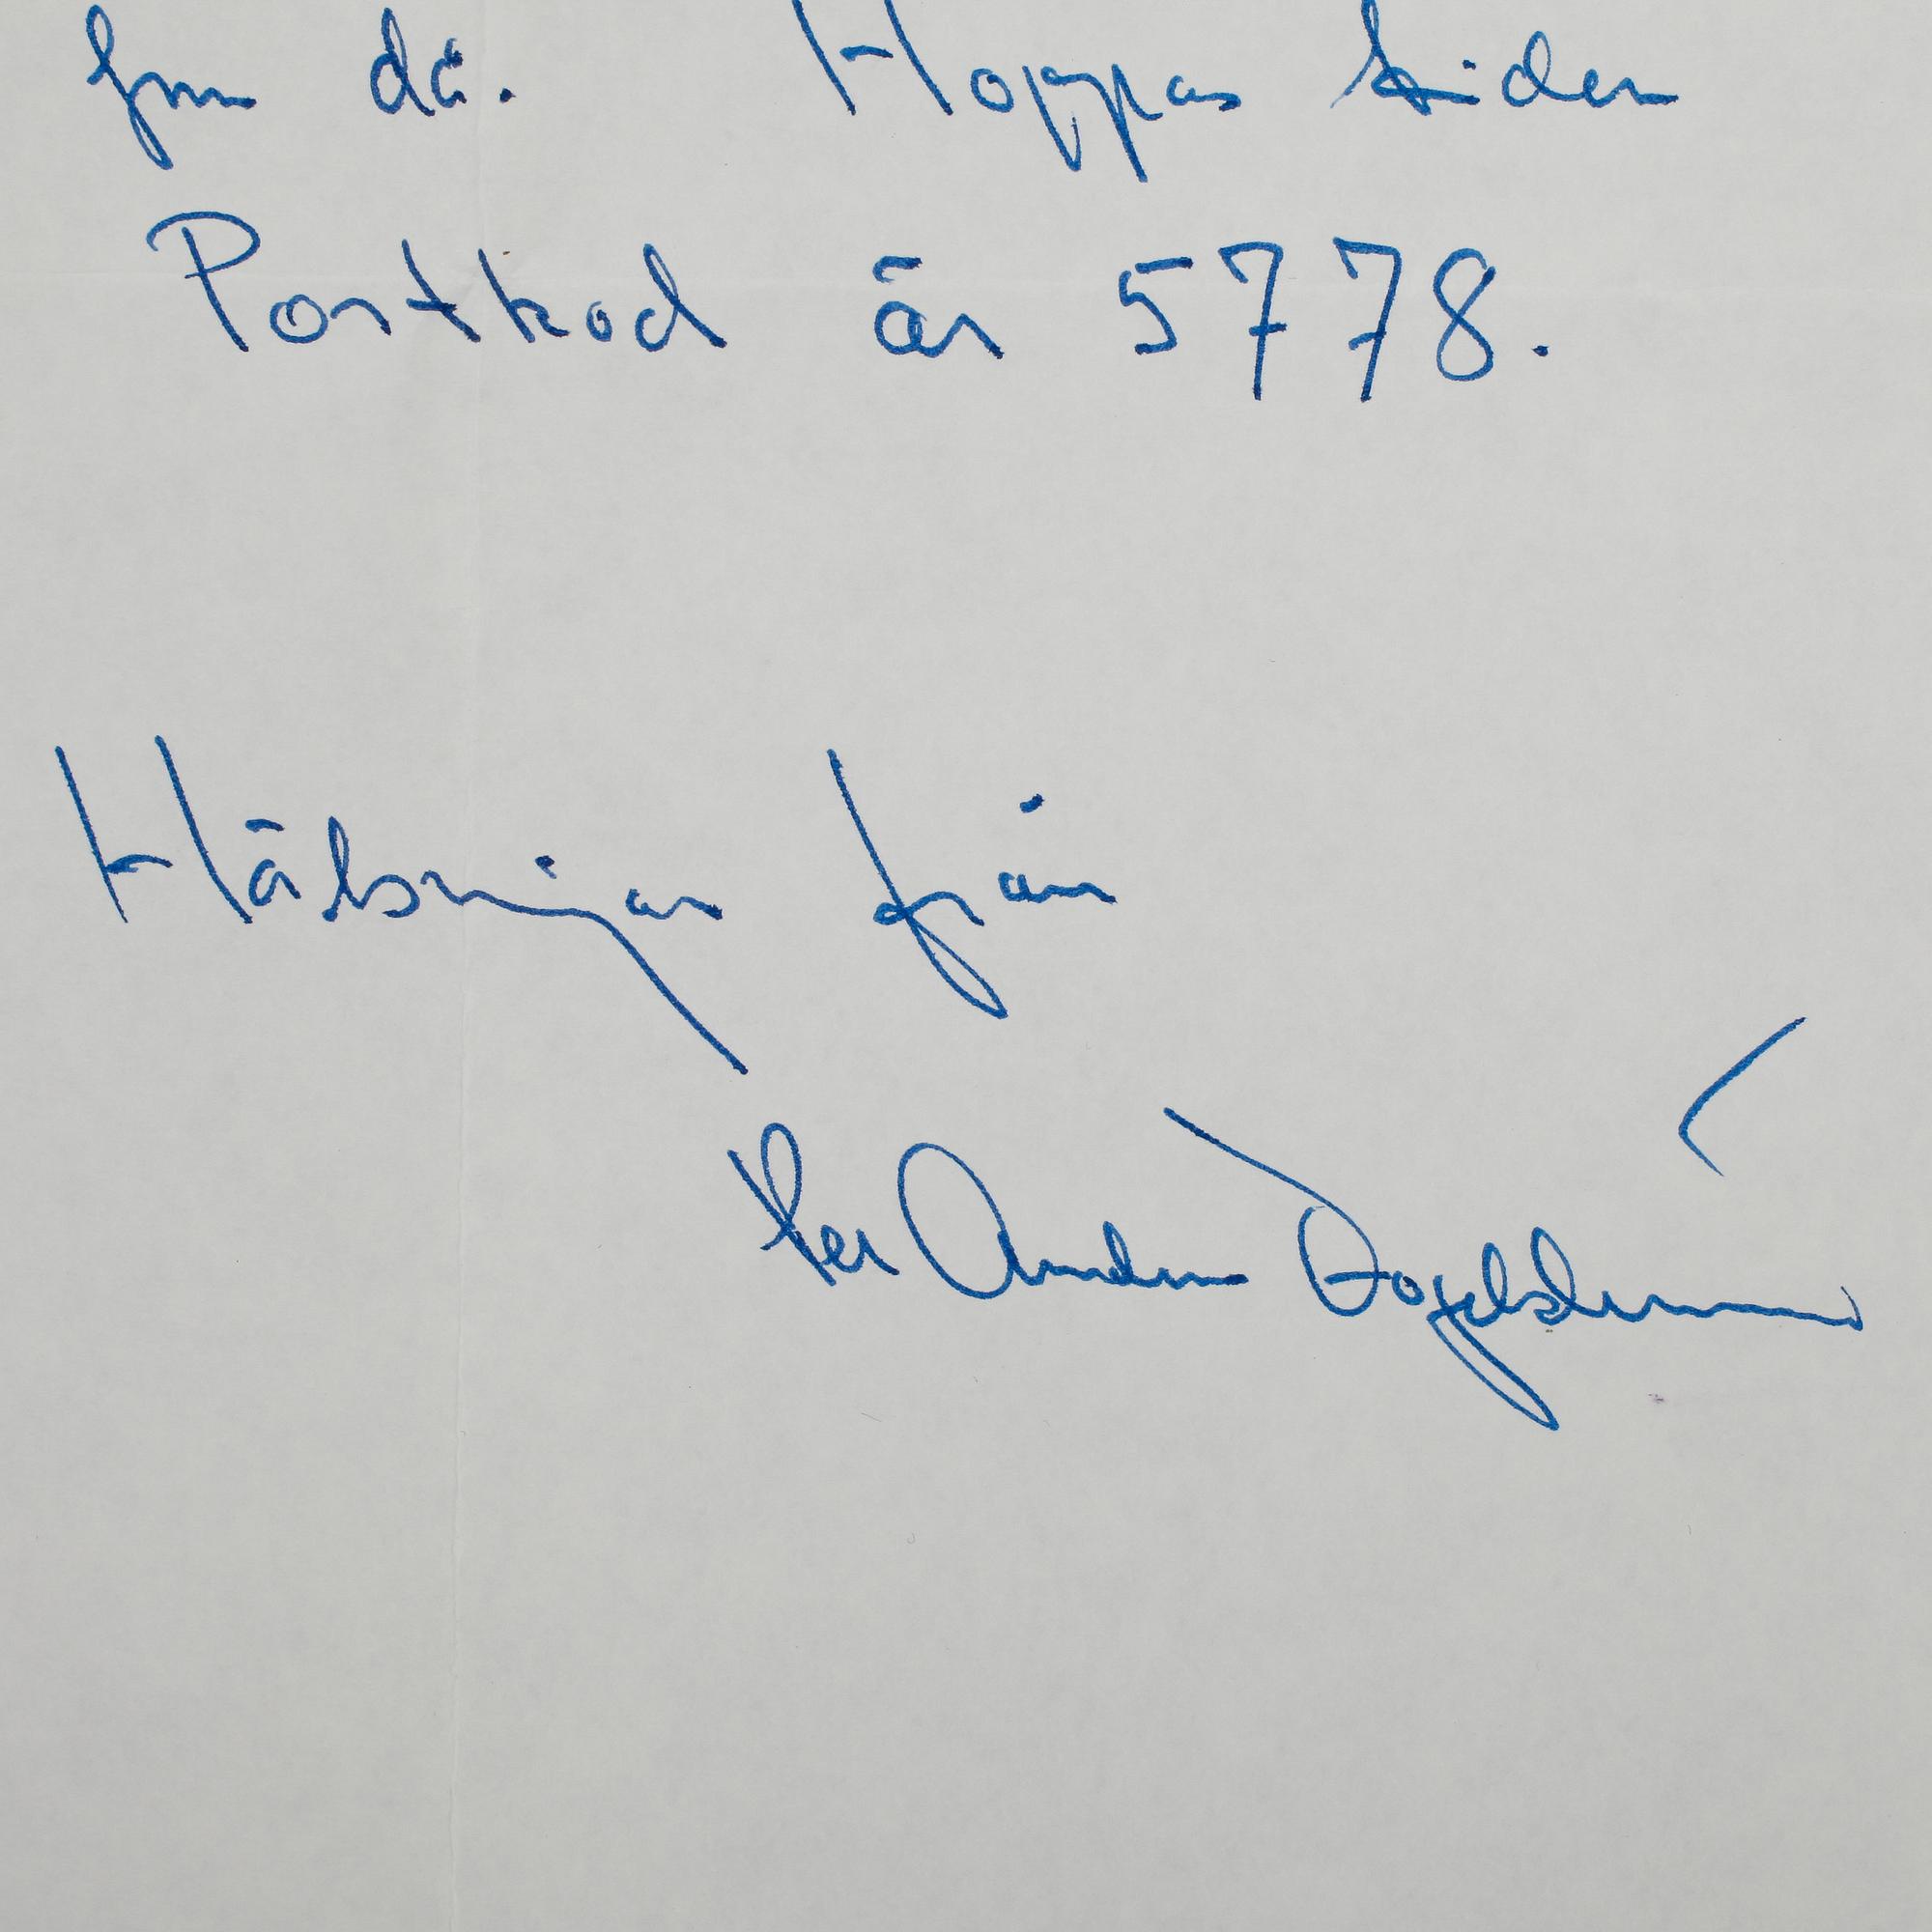 då. Hoppas tiden
Postkod är 5778.
Hälsningar från
Per Anders Fogelström